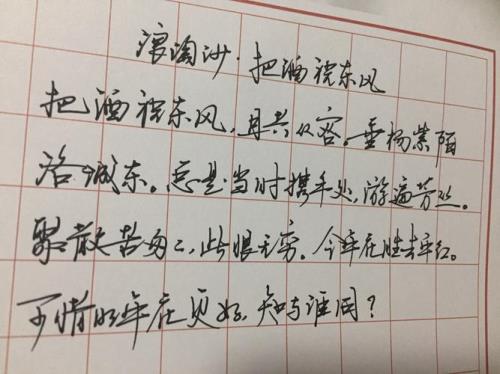 浪淘沙·把酒祝东风
把酒祝东风，且共从容。垂杨紫陌
洛城东。总是当时携手处，游遍芳丛。
聚散苦匆匆，此恨无穷。今年花胜去年红。
可惜明年花更好，知与谁同？